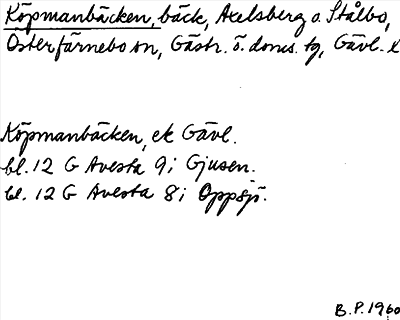 Köpmanbäcken, bäck, Axelsberg o. Stålbo,
Österfärnebo sn, Gästr. ö. doms. tg, Gävl. l
Köpmanbäcken, ek Gävl.
bl. 12 G Avesta 9 i Gjusen.
bl. 12 G Avesta 8 i Oppsjö.
B.P. 1960